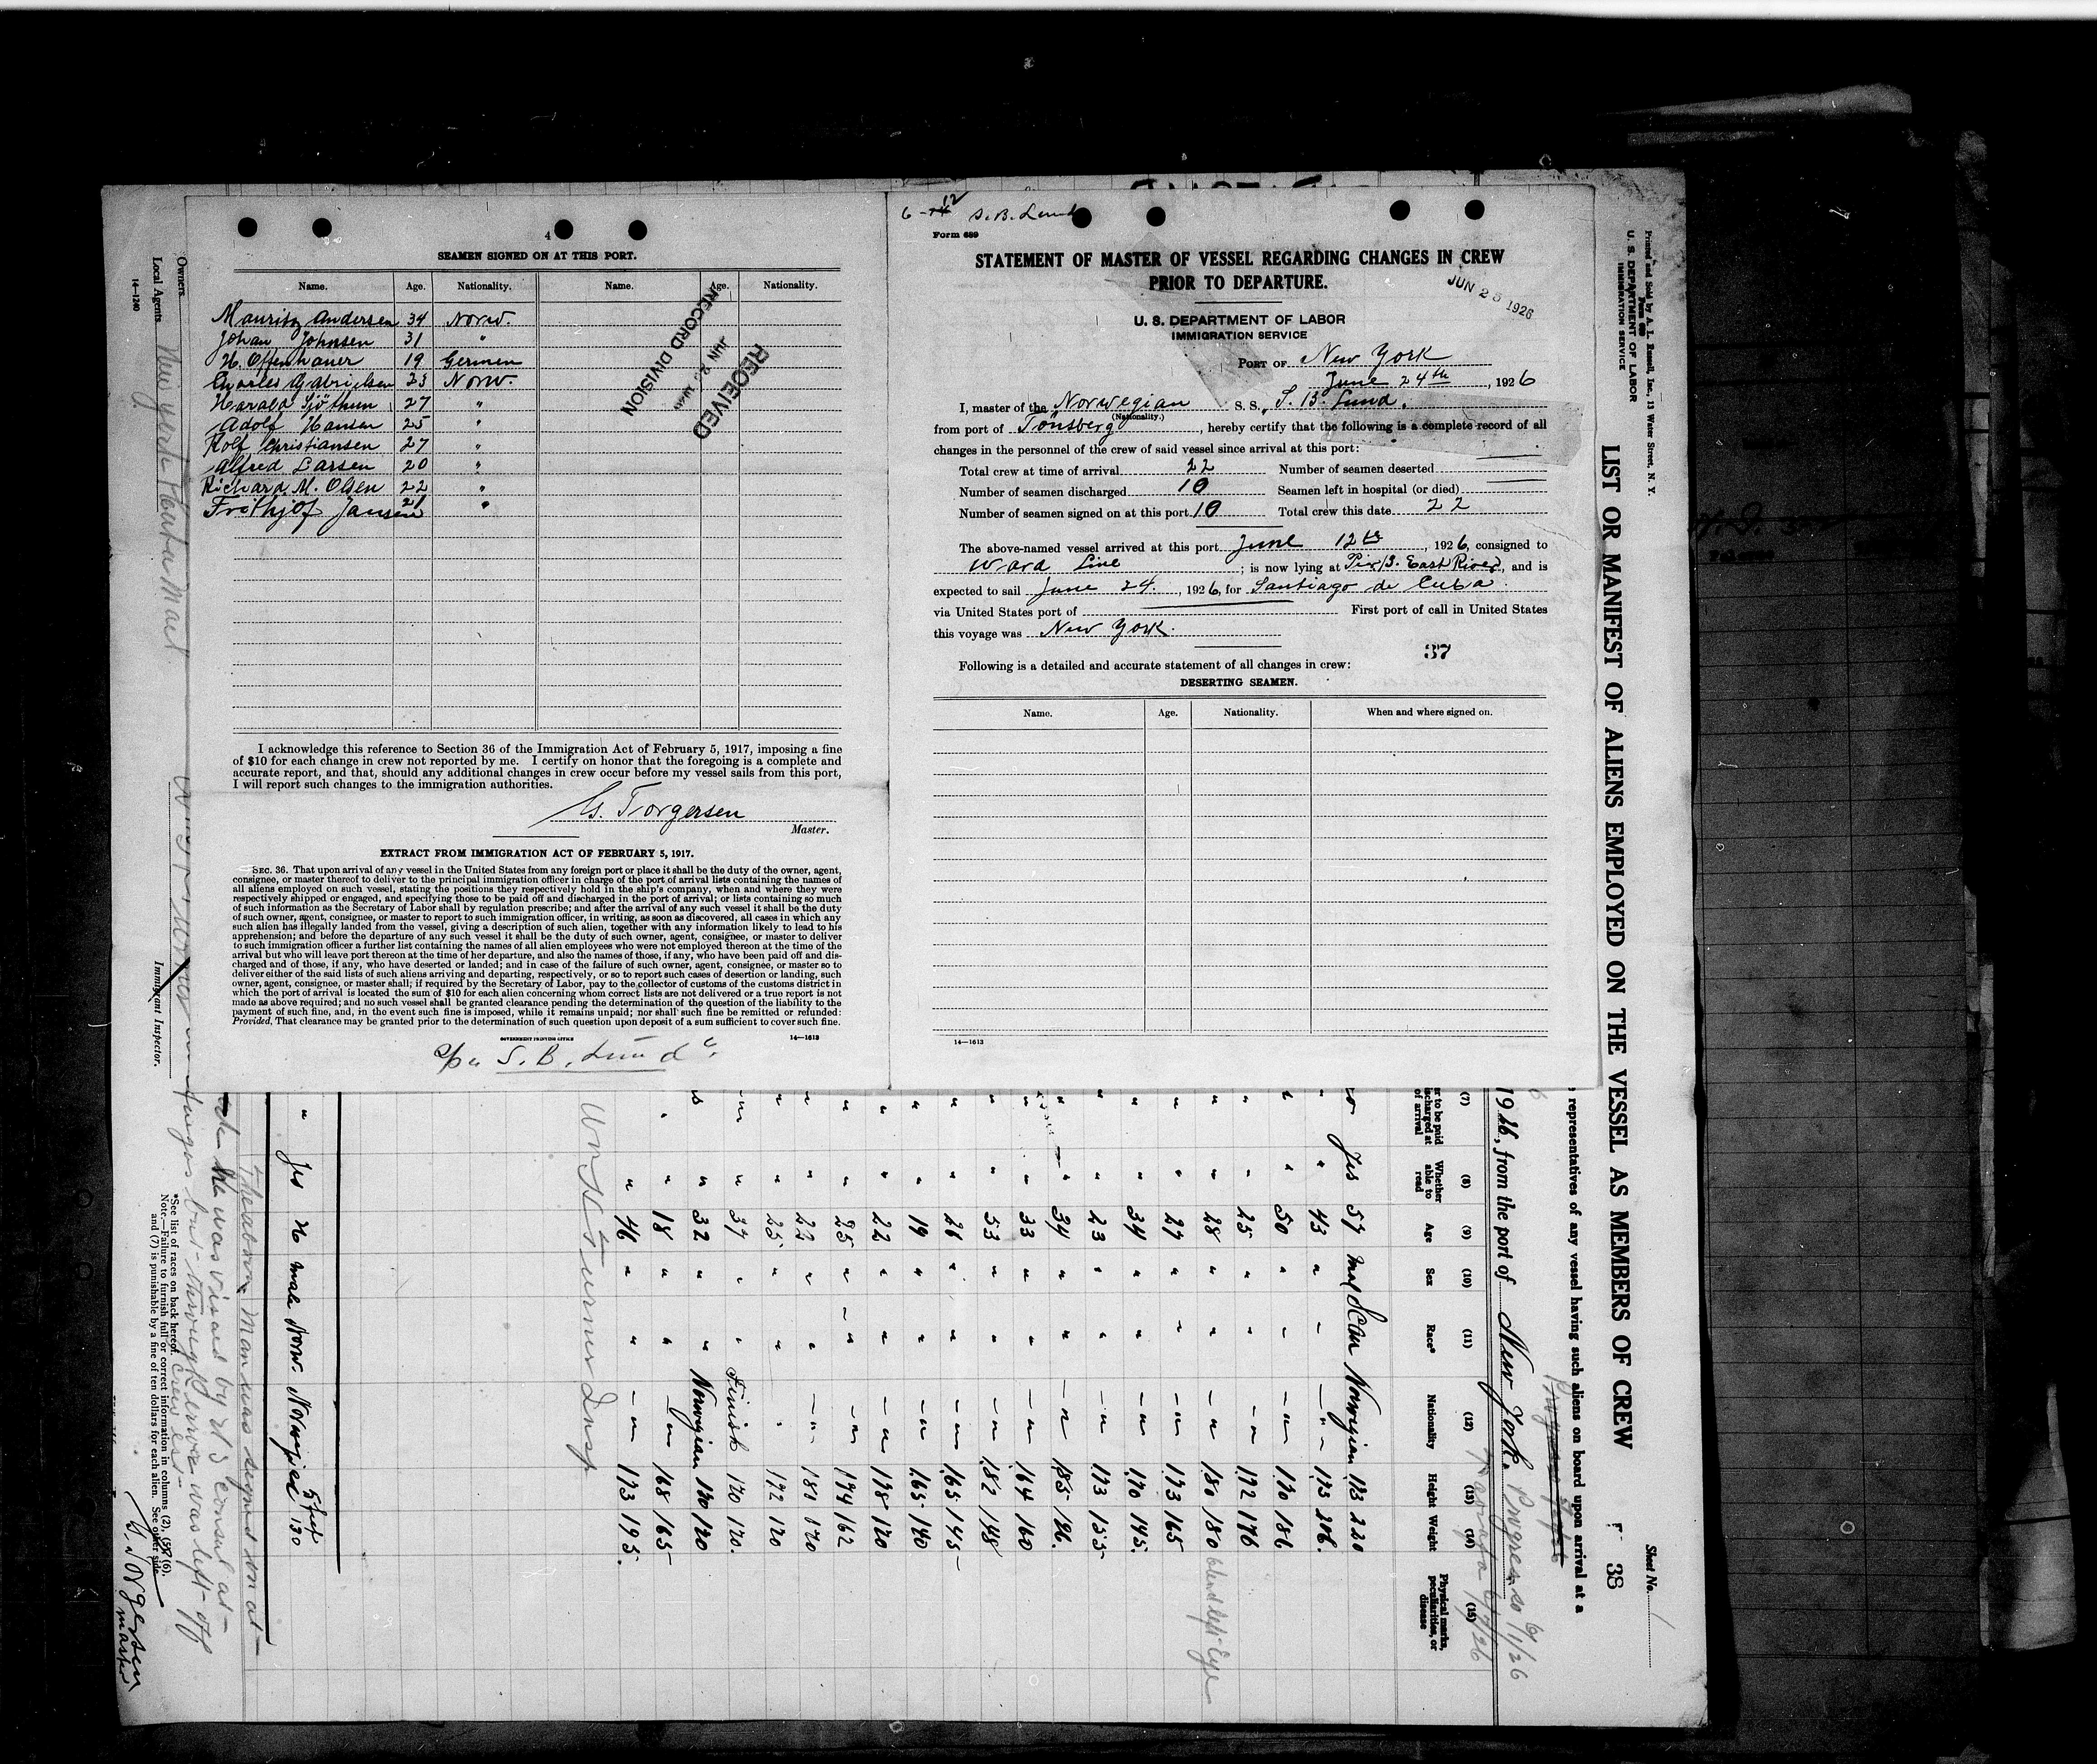 4
SEAMEN SIGNED ON AT THIS PORT.
Name. Age. Nationality. Name. Age. Nationality.
Mauritz Andersen 34 Norw.
Johan Johnsen 31 "
H. Offenhauer 19 Germen
Charles Gabrielsen 23 Norw.
Harald Sjöthun 27 "
Adolf Hansen 25 "
Rolf Christiansen 27 "
Alfred Larsen 20 "
Richard M. Olsen 22 "
Frithjof Jansen 21 "
RECEIVED
JUN
RECORD DIVISION
I acknowledge this reference to Section 36 of the Immigration Act of February 5, 1917, imposing a fine
of $10 for each change in crew not reported by me. I certify on honor that the foregoing is a complete and
accurate report, and that, should any additional changes in crew occur before my vessel sails from this port,
I will report such changes to the immigration authorities.
G. Torgersen
Master.
EXTRACT FROM IMMIGRATION ACT OF FEBRUARY 5, 1917.
SEC. 36. That upon arrival of any vessel in the United States from any foreign port or place it shall be the duty of the owner, agent,
consignee, or master thereof to deliver to the principal immigration officer in charge of the port of arrival lists containing the names of
all aliens employed on such vessel, stating the positions they respectively hold in the ship's company, when and where they were
respectively shipped or engaged, and specifying those to be paid off and discharged in the port of arrival; or lists containing so much
of such information as the Secretary of Labor shall by regulation prescribe; and after the arrival of any such vessel it shall be the duty
of such owner, agent, consignee, or master to report to such immigration officer, in writing, as soon as discovered, all cases in which any
such alien has illegally landed from the vessel, giving a description of such alien, together with any information likely to lead to his
apprehension; and before the departure of any such vessel it shall be the duty of such owner, agent, consignee, or master to deliver
to such immigration officer a further list containing the names of all alien employees who were not employed thereon at the time of the
arrival but who will leave port thereon at the time of her departure, and also the names of those, if any, who have been paid off and dis-
charged and of those, if any, who have deserted or landed; and in case of the failure of such owner, agent, consignee, or master so to
deliver either of the said lists of such aliens arriving and departing, respectively, or so to report such cases of desertion or landing, such
owner, agent, consignee, or master shall; if required by the Secretary of Labor, pay to the collector of customs of the customs district in
which the port of arrival is located the sum of $10 for each alien concerning whom correct lists are not delivered or a true report is not
made as above required; and no such vessel shall be granted clearance pending the determination of the question of the liability to the
payment of such fine, and, in the event such fine is imposed, while it remains unpaid; nor shall such fine be remitted or refunded:
Provided, That clearance may be granted prior to the determination of such question upon deposit of a sum sufficient to cover such fine.
GOVERNMENT PRINTING OFFICE
14—1613
S. B. Lund
6 - 12 S. B. Lund
Form 689
STATEMENT OF MASTER OF VESSEL REGARDING CHANGES IN CREW
PRIOR TO DEPARTURE.
JUN 25 1926
U. S. DEPARTMENT OF LABOR
IMMIGRATION SERVICE
PORT OF New York
June 24th, 1926
I, master of the Norwegian S. S. "S. B. Lund.
(Nationality.)
from port of Tönsberg, hereby certify that the following is a complete record of all
changes in the personnel of the crew of said vessel since arrival at this port:
Total crew at time of arrival 22 Number of seamen deserted
Number of seamen discharged 10 Seamen left in hospital (or died)
Number of seamen signed on at this port 10 Total crew this date 22
The above-named vessel arrived at this port June 12th, 1926, consigned to
Ward Line; is now lying at Pier 13. East River, and is
expected to sail June 24., 1926, for Santiago de Cuba
via United States port of First port of call in United States
this voyage was New York.
37
Following is a detailed and accurate statement of all changes in crew:
DESERTING SEAMEN.
Name. Age. Nationality. When and where signed on.
14—1613
Printed and Sold by A. L. Russell, Inc., 13 Water Street, N. Y.
U. S. DEPARTMENT OF LABOR
IMMIGRATION SERVICE
Sheet No.
LIST OR MANIFEST OF ALIENS EMPLOYED ON THE VESSEL AS MEMBERS OF CREW
38
representatives of any vessel having such aliens on board upon arrival at a
1926, from the port of New York. Progreso 6/1/26
Tarafa 6/7/26
(7) (8) (9) (10) (11) (12) (13) (14) (15)
Whether able to read Age Sex Race* Nationality Height Weight Physical marks, peculiarities, or disease
Yes 57 Mal Scan Norwegian 173 220
" 43 " " " 175 206.
" 50 " " " 170 186
" 25 " " " 172 176
" 28 " " " 180 180 blind left Eye
" 27 " " " 173 165
" 34 " " " 170 145.
" 23 " " " 173 155
" 34 " " " 185 186.
" 33 " " " 164 160
" 53 " " " 182 148
" 26 " " " 165 145
" 19 " " " 165 140
" 22 " " " 178 170
" 25 " " " 174 162
" 22 " " " 181 170
" 25 " " " 172 170
" 37 " " Finish 170 170.
" 32 " " Norwegian 170 170
" 18 " " " 168 165
" 46 " " " 173 195.
Wm H Turner Insp
" Yes 26 male Norw. Norwegian 5 feet 130
The above man was signed on at
he was visaed by U S Consul at
but through error was left off
crew list
*See list of races on back hereof.
Note.—Failure to furnish full or correct information in columns (2), (5), (6),
and (7) is punishable by a fine of ten dollars for each alien. See other side
G. Torgersen
master
Owners
Local Agents
14—1240
Immigrant Inspector.